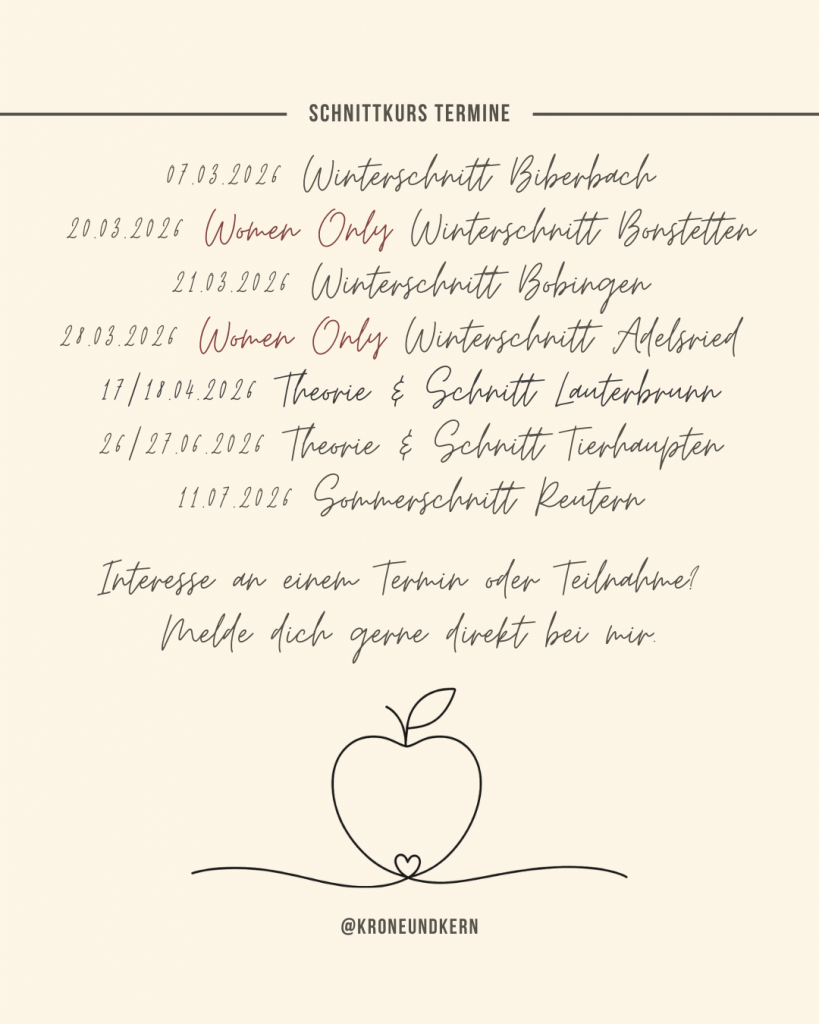 SCHNITTKURS TERMINE
07.03.2026 Winterschnitt Biberbach
20.03.2026 Women Only Winterschnitt Bonstetten
21.03.2026 Winterschnitt Bobingen
28.03.2026 Women Only Winterschnitt Adelsried
17/18.04.2026 Theorie & Schnitt Lauterbrunn
26/27.06.2026 Theorie & Schnitt Tierhaupten
11.07.2026 Sommerschnitt Reutern
Interesse an einem Termin oder Teilnahme?
Melde dich gerne direkt bei mir.
@KRONEUNDKERN